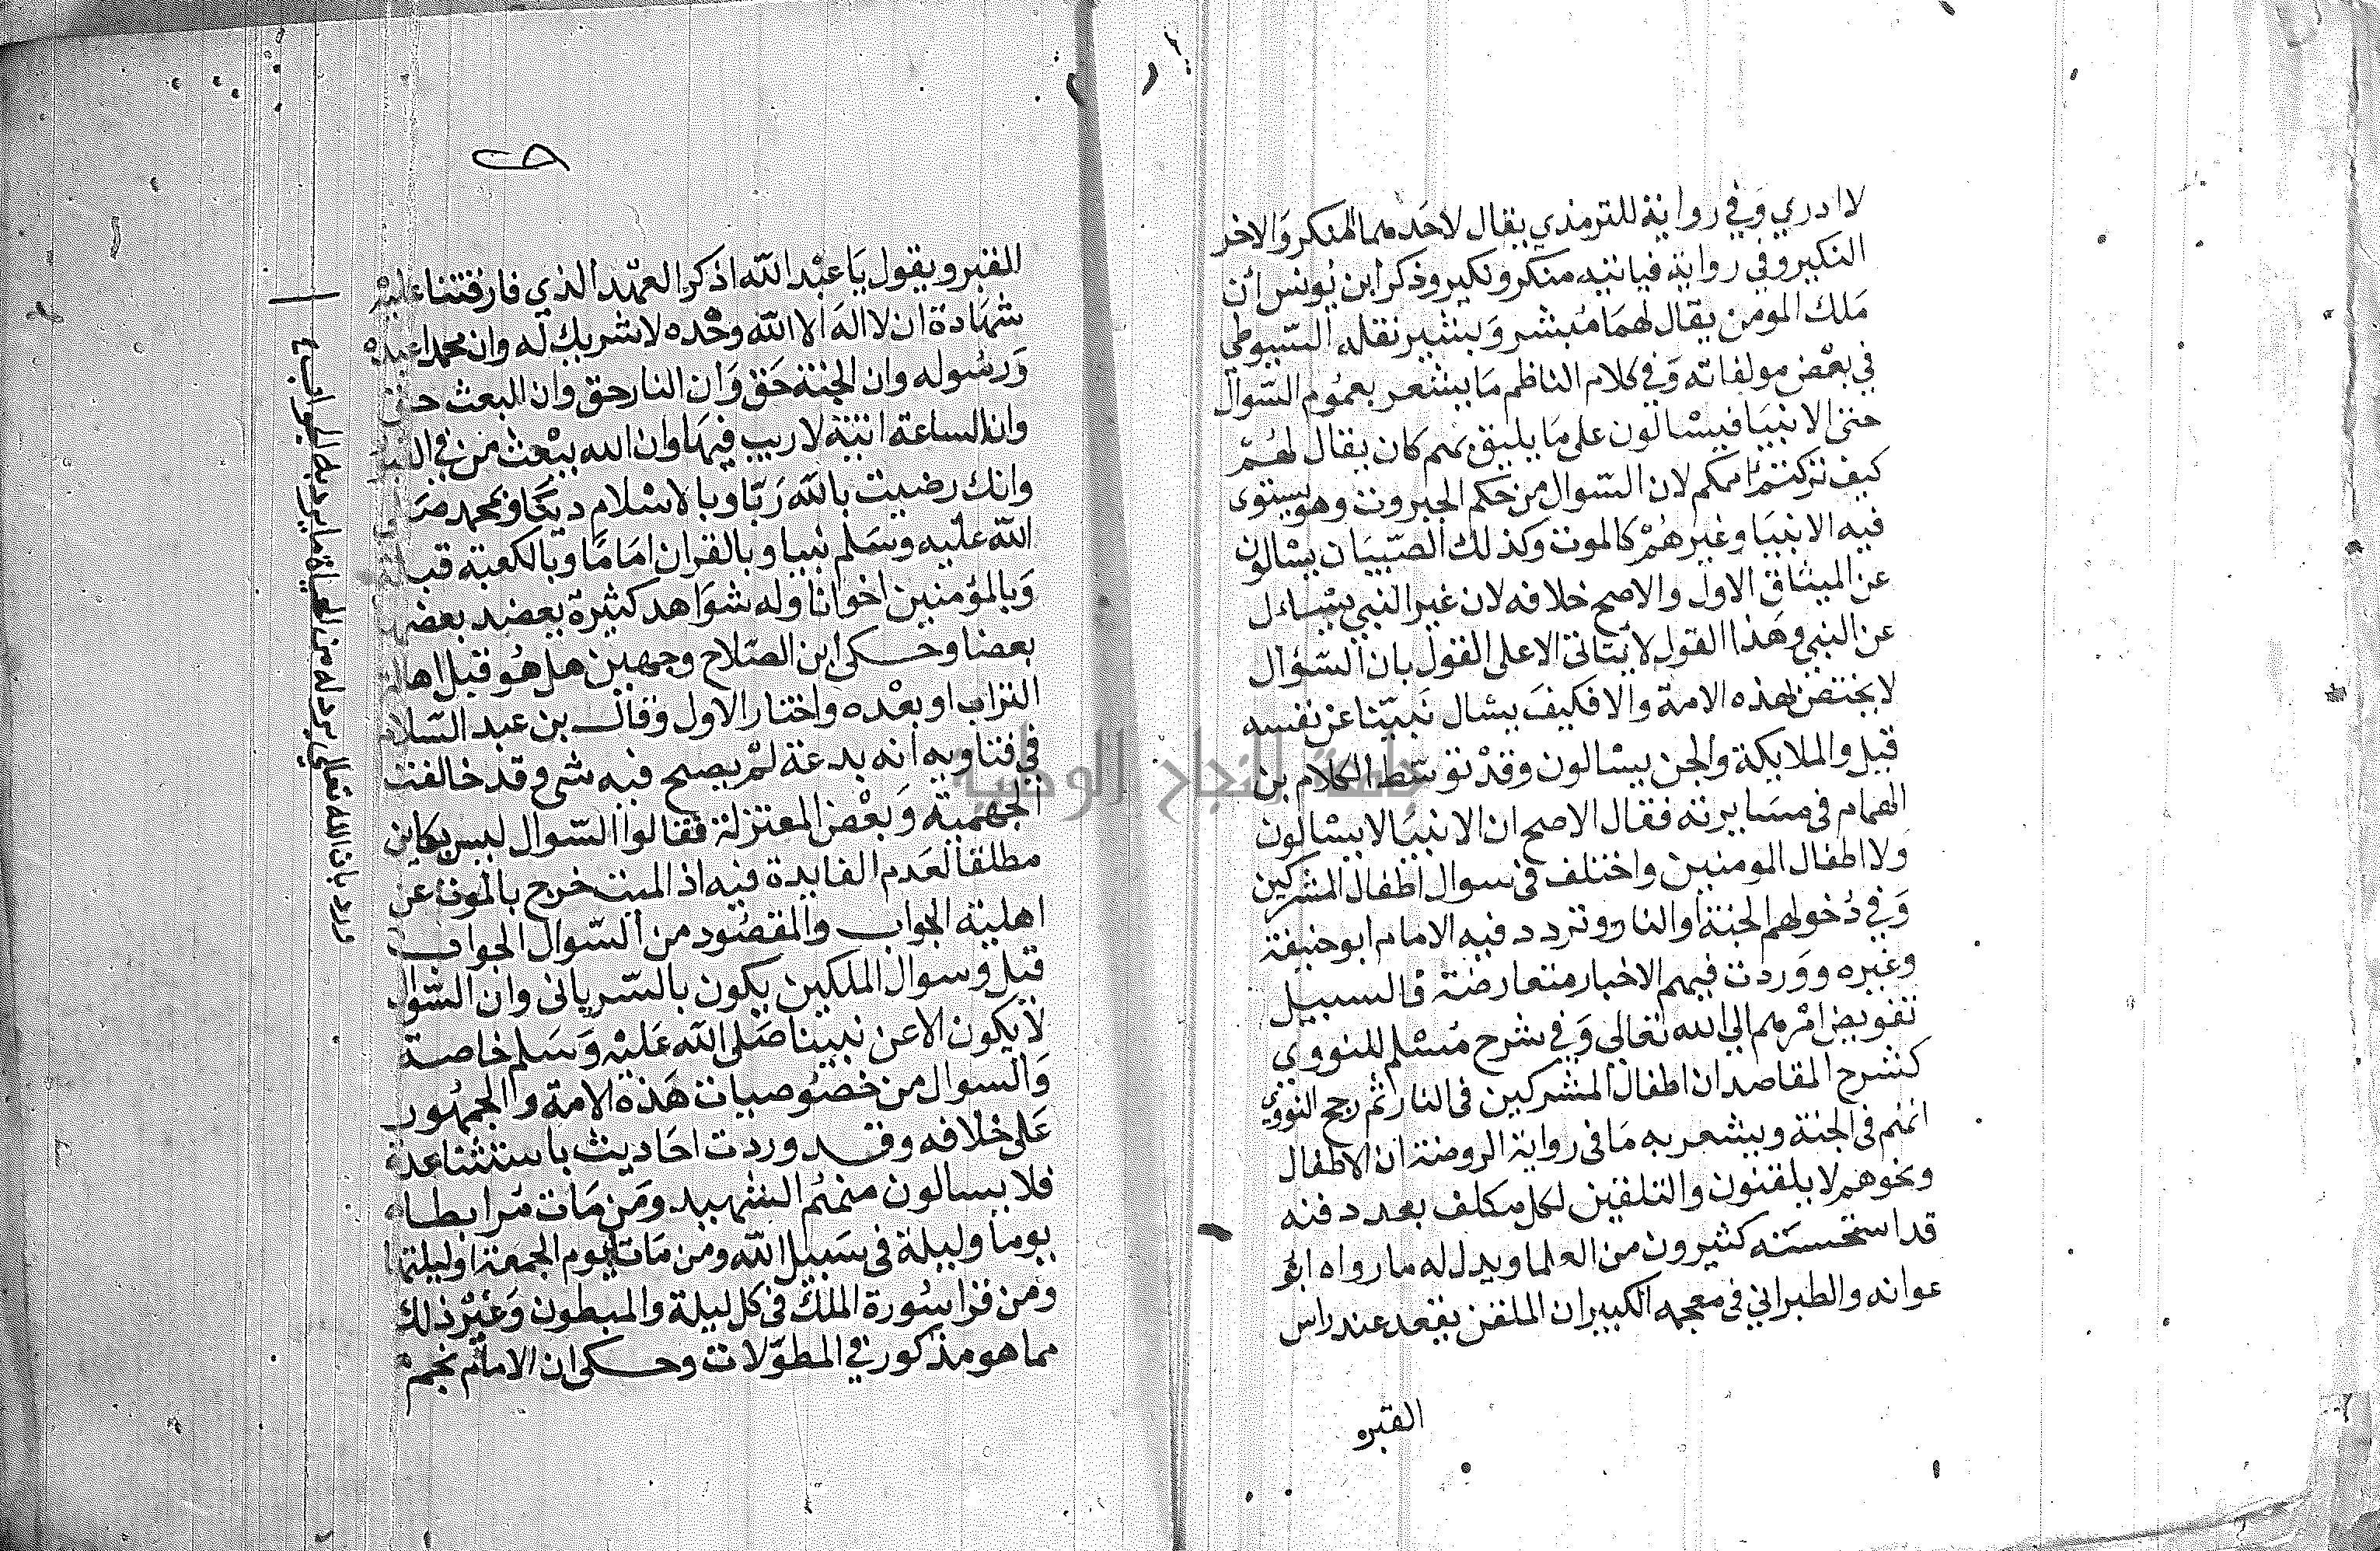 لا ادري وفي رواية للترمذي يقال لاحدهما المنكر والاخر
النكير وفي رواية فياتيه منكر ونكير وذكر ابن يونس ان
ملك المومن يقال لهما مبشر وبشير نقله السيوطي
في بعض مولفاته وفي كلام الناظم ما يشعر بعموم السوال
حتى الانبيا فيسالون على ما يليق بهم كان يقال لهم
كيف تركتم اممكم لان السوال من حكم الجبروت وهو يستوى
فيه الانبيا وغيرهم كالموت وكذلك الصبيان يسالون
عن الميثاق الاول والاصح خلافه لان غير النبي يساءل
عن النبي وهذا القول لا يتاتى الا على القول بان السؤال
لا يختص لهذه الامة والا فكيف يسال نبينا عن نفسه
قيل والملايكة والجن يسالون وقد توسط الكلام بن
الهمام في مسايرته فقال الاصح ان الانبيا لا يسالون
ولا اطفال المومنين واختلف في سوال اطفال المشركين
وفي دخولهم الجنة او النار وتردد فيه الامام ابو حنيفة
وغيره ووردت فيهم الاخبار متعارضة فالسبيل
تفويض امرهم الى الله تعالى وفي شرح مسلم للنووي
كشرح المقاصد ان اطفال المشركين في النار ثم رجح النووي
انهم في الجنة ويشعر به ما في رواية الروضة ان الاطفال
ونحوهم لا يلقنون والتلقين لكل مكلف بعد دفنه
قد استحسنه كثيرون من العلما ويدل له ما رواه ابو
عوانه والطبراني في معجمه الكبير ان الملقن يقعد عند راس
القبر
القبر ويقول يا عبد الله اذكر العهد الذي فارقتنا عليه
شهادة ان لا اله الا الله وحده لا شريك له وان محمدا عبده
ورسوله وان الجنة حق وان النار حق وان البعث حق
وان الساعة اتية لا ريب فيها وان الله يبعث من في القبور
وانك رضيت بالله ربا وبالاسلام دينا وبمحمد صلى
الله عليه وسلم نبيا وبالقران اماما وبالكعبة قبلة
وبالمؤمنين اخوانا وله شواهد كثيرة يعضد بعضها
بعضا وحكى ابن الصلاح وجهين هل هو قبل اهالة
التراب او بعده واختار الاول وقال بن عبد السلام
في فتاويه انه بدعة لم يصح فيه شى وقد خالفت
الجهمية وبعض المعتزلة فقالوا السوال ليس بكاين
مطلقا لعدم الفايدة فيه اذ الميت خرج بالموت عن
اهلية الجواب والمقصود من السوال الجواب
قيل وسوال الملكين يكون بالسرياني وان السوال
لا يكون الا عن نبينا صلى الله عليه وسلم خاصة
والسوال من خصوصيات هذه الامة والجمهور
على خلافه وقد وردت احاديث باستثنا عدة
فلا يسالون منهم الشهيد ومن مات مرابطا
يوما وليلة في سبيل الله ومن مات يوم الجمعة او ليلتها
ومن قرا سورة الملك في كل ليلة والمبطون وغير ذلك
مما هو مذكور في المطولات وحكى ان الامام نجم